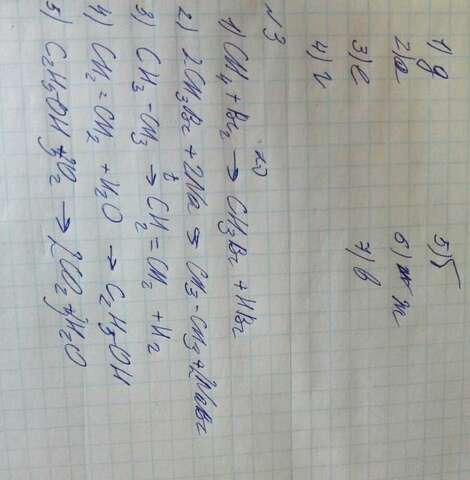 1) д
2) а
3) е
4) г
5) б
6) ж
7) в
№3
hν
1) CH4 + Br2 → CH3Br + HBr
2) 2CH3Br + 2Na → CH3-CH3 + 2NaBr
3) CH3-CH3 →t CH2=CH2 + H2
4) CH2=CH2 + H2O → C2H5OH
5) C2H5OH + 3O2 → 2CO2 + 3H2O